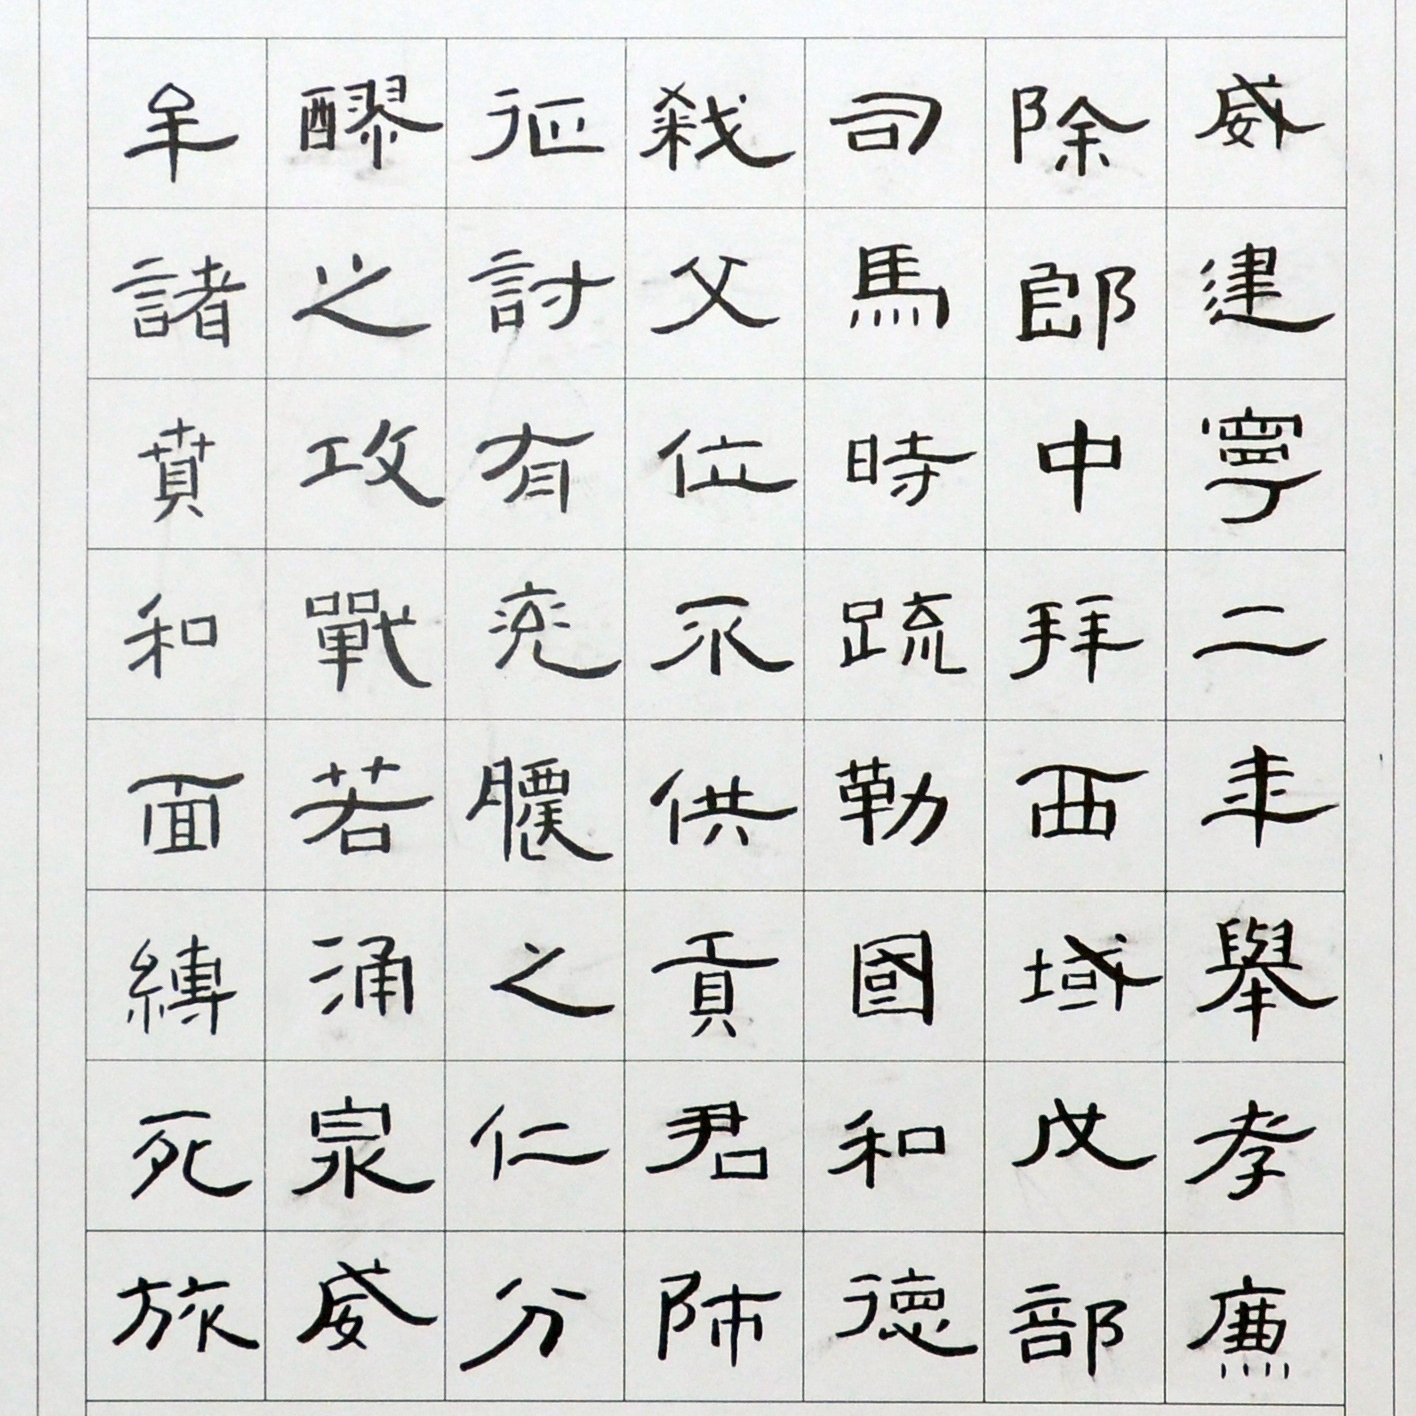 威建寧二年舉孝廉
除郎中拜西域戊部
司馬時疏勒國和德
殺父位不供貢君師
征討有兖膿之仁分
醪之攻戰若涌泉威
牟諸賁和面縛死旅